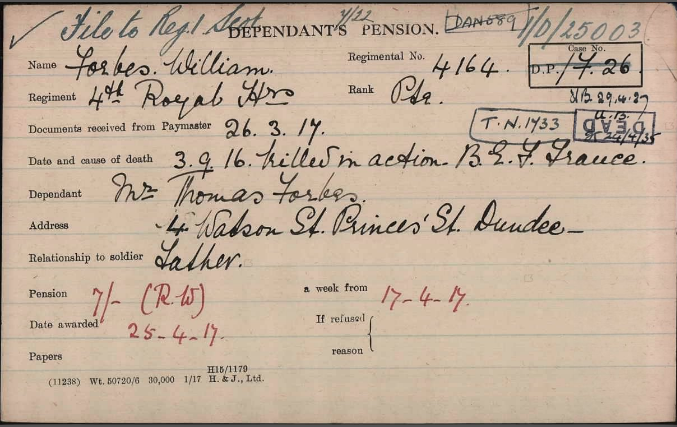 File to Reg! Scot 4/22 DAN089 1/D/25003
DEPENDANT'S PENSION.
Case No.
D.P. 17.26
Name Forbes. William. Regimental No. 4164.
NB 29.4.27
Regiment 4th Royal Hrs Rank Pte.
Documents received from Paymaster 26. 3. 17. T.N. 1733 DEAD
Date and cause of death 3. 9. 16. killed in action. B.E.F. France.
Dependant Mr Thomas Forbes.
Address 4 Watson St. Princes' St. Dundee —
Relationship to soldier Father.
Pension 7/- (R.W) a week from 17-4-17.
Date awarded 25-4-17. If refused
reason
Papers
H15/1179
(11238) Wt. 50720/6 30,000 1/17 H. & J., Ltd.